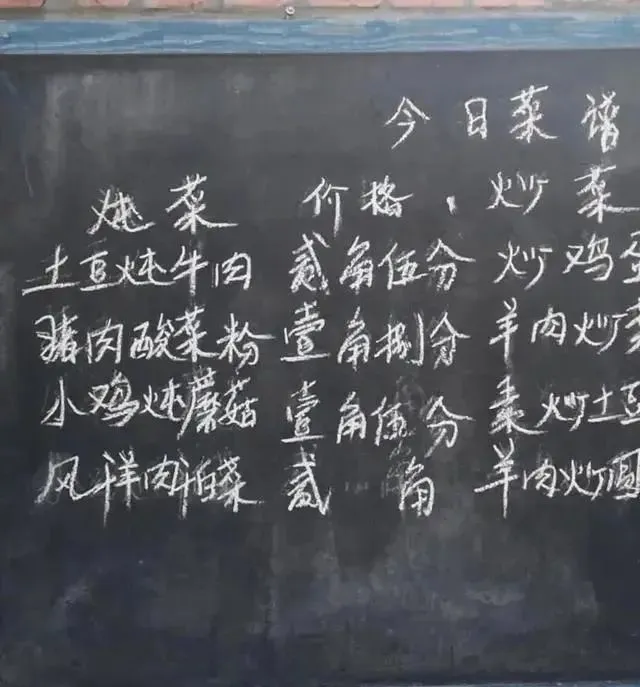 今日菜谱
炖菜 价格 炒菜
土豆炖牛肉 贰角伍分 炒鸡蛋
猪肉酸菜粉 壹角捌分 羊肉炒
小鸡炖蘑菇 壹角伍分 素炒土豆
风洋肉 贰角 羊肉炒圆